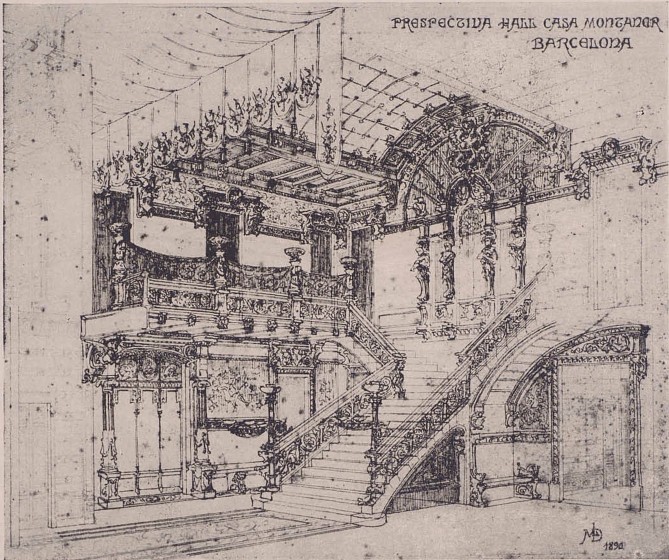 PRESPECTIVA HALL CASA MONTANER
BARCELONA
1890